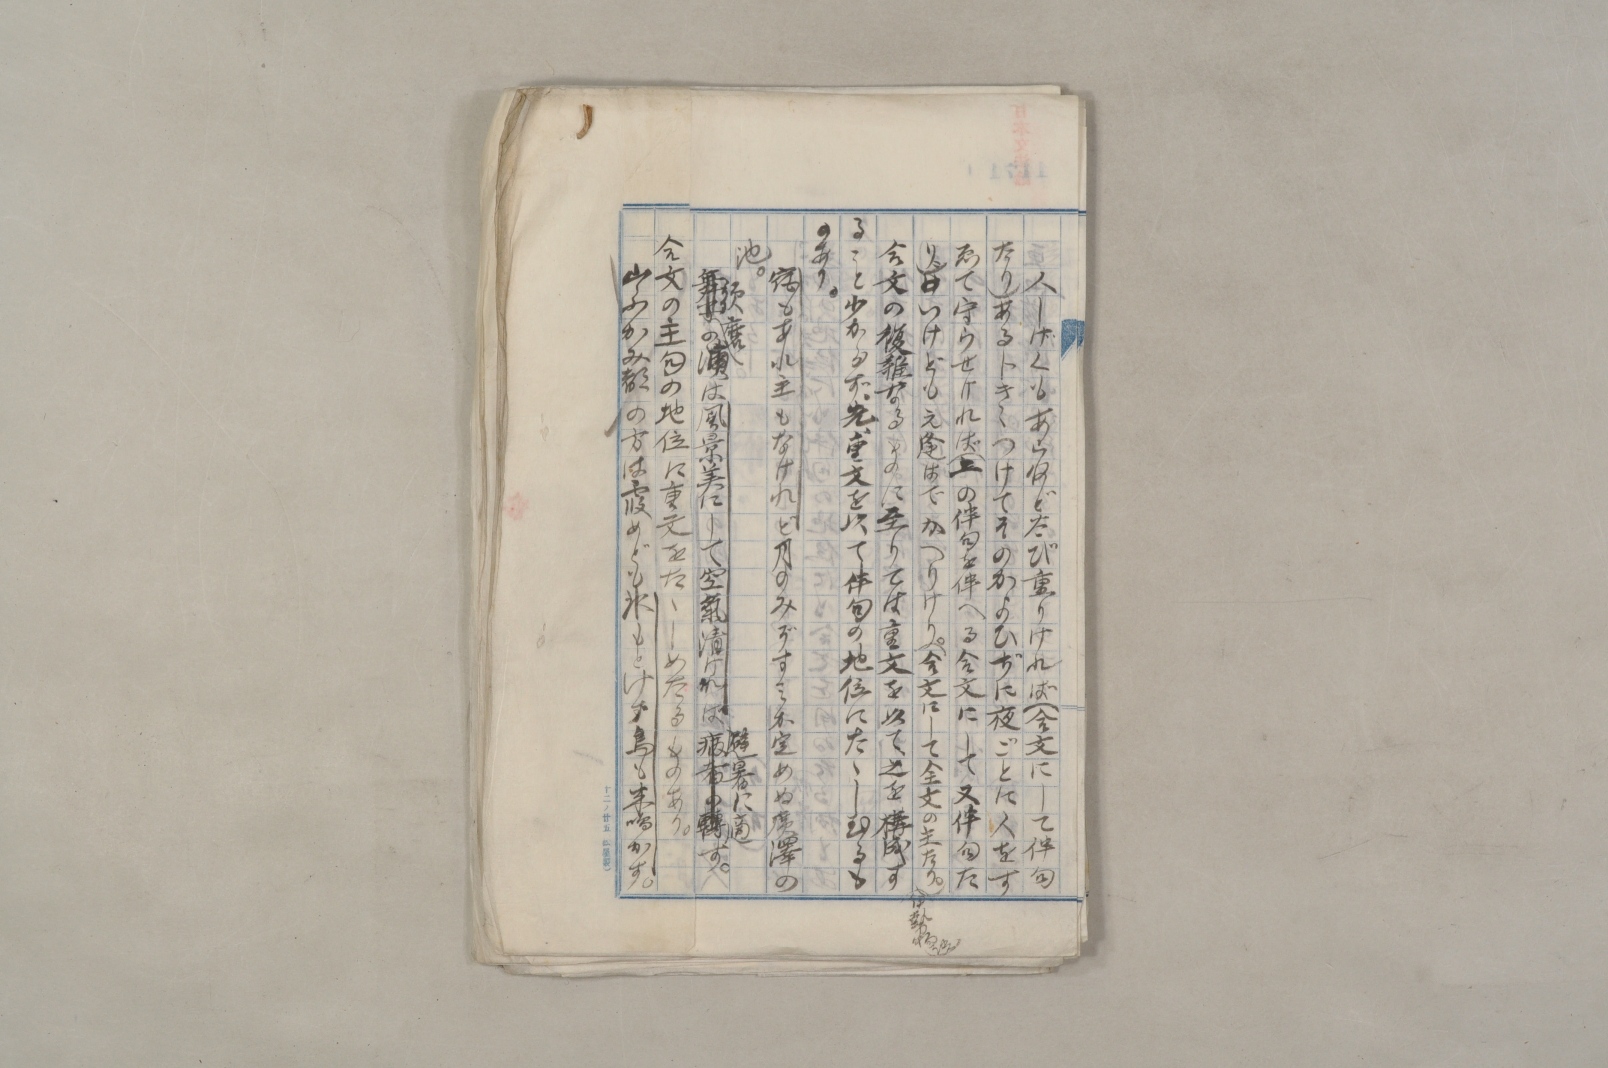 人しげくもあらねど度び重りければ(合文にして伴句
たり)あるじききつけてそのかよひぢに夜ごとに人をす
ゑて守らせければ(上の伴句を伴へる合文にして又伴句た
り)いけどもえ逢はでかへりけり。(合文にして全文の主たり。)(伊勢物語)
合文の複雑なるものに至りては重文を以て之を構成す
ること少からず、先、重文を以て伴句の地位にたゝしむるも
のあり。
窓もあれ主もなけれど月のみぞすみか定めぬ廣澤の
池。
須磨の浦は風景美にして空氣清ければ避暑に適す。
合文の主句の地位に重文をたゝしめたるものあり。
山ふかみ都の方は霞めども氷もとけず鳥も来鳴かず。